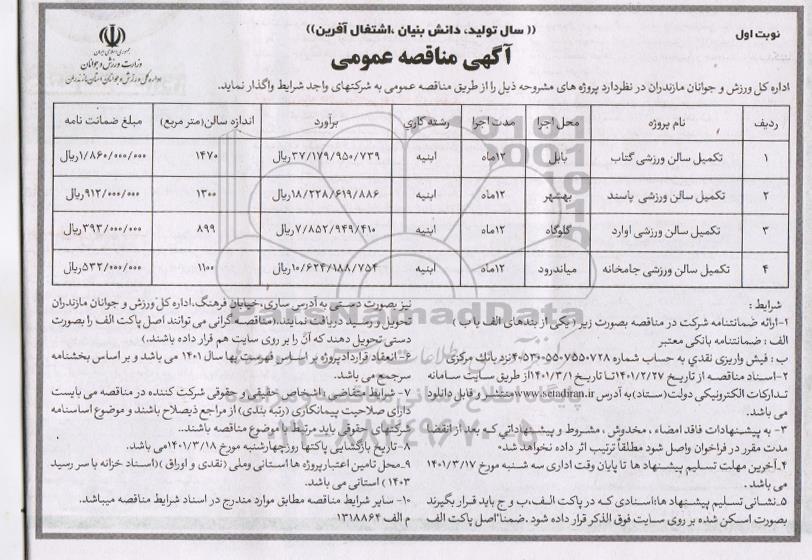 (( سال تولید، دانش بنیان ،اشتغال آفرین))
نوبت اول
آگهی مناقصه عمومی
جمهوری اسلامی ایران
وزارت ورزش و جوانان
اداره کل ورزش و جوانان استان مازندران
اداره کل ورزش و جوانان مازندران در نظردارد پروژه های مشروحه ذیل را از طریق مناقصه عمومی به شرکتهای واجد شرایط واگذار نماید.
ردیف نام پروژه محل اجرا مدت اجرا رشته کاري برآورد اندازه سالن(متر مربع) مبلغ ضمانت نامه
۱ تکمیل سالن ورزشی گتاب بابل ۱۲ماه ابنیه ۳۷/۱۷۹/۹۵۰/۷۳۹ریال ۱۴۷۰ ۱/۸۶۰/۰۰۰/۰۰۰ریال
۲ تکمیل سالن ورزشی پاسند بهشهر ۱۲ماه ابنیه ۱۸/۲۲۸/۶۱۹/۸۸۶ریال ۱۳۰۰ ۹۱۲/۰۰۰/۰۰۰ریال
۳ تکمیل سالن ورزشی اوارد گلوگاه ۱۲ماه ابنیه ۷/۸۵۲/۹۴۹/۴۱۰ریال ۸۹۹ ۳۹۳/۰۰۰/۰۰۰ریال
۴ تکمیل سالن ورزشی جامخانه میاندرود ۱۲ماه ابنیه ۱۰/۶۲۴/۱۸۸/۷۵۴ریال ۱۱۰۰ ۵۳۲/۰۰۰/۰۰۰ریال
شرایط :
۱-ارائه ضمانتنامه شرکت در مناقصه بصورت زیر ( یکی از بندهای الف یا ب )
الف : ضمانتنامه بانکی معتبر
ب : فیش واریزی نقدي به حساب شماره ۴۰۵۳۰۵۵۰۷۵۵۰۷۲۸نزد بانك مرکزی
۲-اسناد مناقصه از تاریخ ۱۴۰۱/۲/۲۷تا تاریخ ۱۴۰۱/۳/۱از طریق سایت سامانه
تدارکات الکترونیکی دولت(ستاد)به آدرس www.setadiran.irمنتشر و قابل دانلود
می باشد.
۳- به پیشنهادات فاقد امضاء ، مخدوش ، مشروط و پیشنهاداتی که بعد از انقضا
مدت مقرر در فراخوان واصل شود مطلقاً ترتیب اثر داده نخواهد شد.
۴_آخرین مهلت تسلیم پیشنهاد ها تا پایان وقت اداری سه شنبه مورخ ۱۴۰۱/۳/۱۷
می باشد .
۵_نشانی تسلیم پیشنهاد ها:اسنادی که در پاکت الف،ب و ج باید قرار بگیرند
بصورت اسکن شده بر روی سایت فوق الذکر قرار داده شود .ضمنا"اصل پاکت الف
نیز بصورت دستی به آدرس ساری،خیابان فرهنگ،اداره کل ورزش و جوانان مازندران
تحویل و رسید دریافت نمایند.(مناقصه گرانی می توانند اصل پاکت الف را بصورت
دستی تحویل دهند که آن را بر روی سایت هم قرار داده باشند.)
۶-انعقاد قراردادپروژه بر اساس فهرست بها سال ۱۴۰۱ می باشد و بر اساس بخشنامه
سرجمع می باشد.
۷- شرایط متقاضی :اشخاص حقیقی و حقوقی شرکت کننده در مناقصه می بایست
دارای صلاحیت پیمانکاری (رتبه بندی) از مراجع ذیصلاح باشند و موضوع اساسنامه
شرکتهای حقوقی باید مرتبط با موضوع مناقصه باشند..
۸-تاریخ بازگشایی پاکتها روزچهارشنبه مورخ ۱۴۰۱/۳/۱۸می باشد.
۹_محل تامین اعتبارپروژه ها استانی وملی (نقدی و اوراق )(اسناد خزانه با سر رسید
۱۴۰۳ ) استانی می باشد.
۱۰- سایر شرایط مناقصه مطابق موارد مندرج در اسناد شرایط مناقصه میباشد.
م الف ۱۳۱۸۸۶۴
ParsNamadData
۰۲۱-۸۸۳۴۹۶۷۰-۵